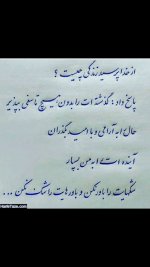 از خدا پرسید زندگی چیست ؟
پاسخ داد : گذشته ات را بدون هیچ تاسفی بپذیر
حال را به آرامی و با امید بگذران
آینده است را به من بسپار
شکهایت را باور نکن و باورهایت را شک نکن ...